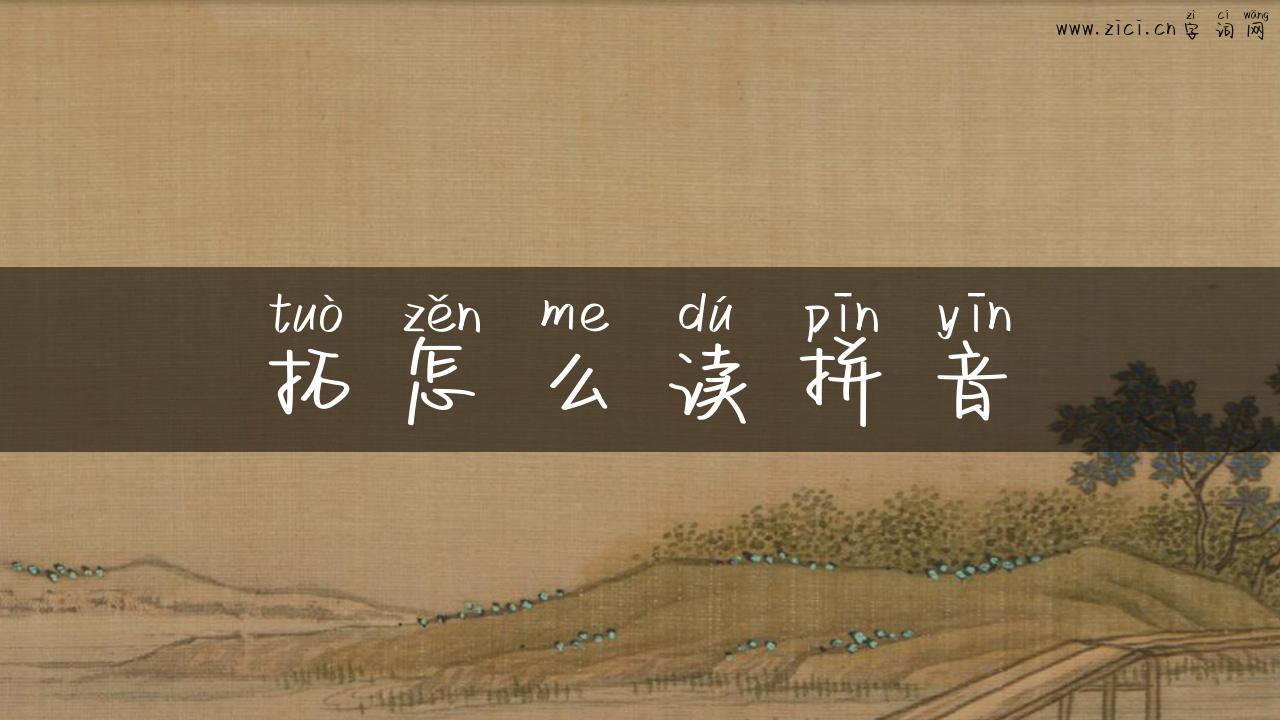 zì cí wǎng
www.zici.cn 字词网
tuò zěn me dú pīn yīn
拓怎么读拼音